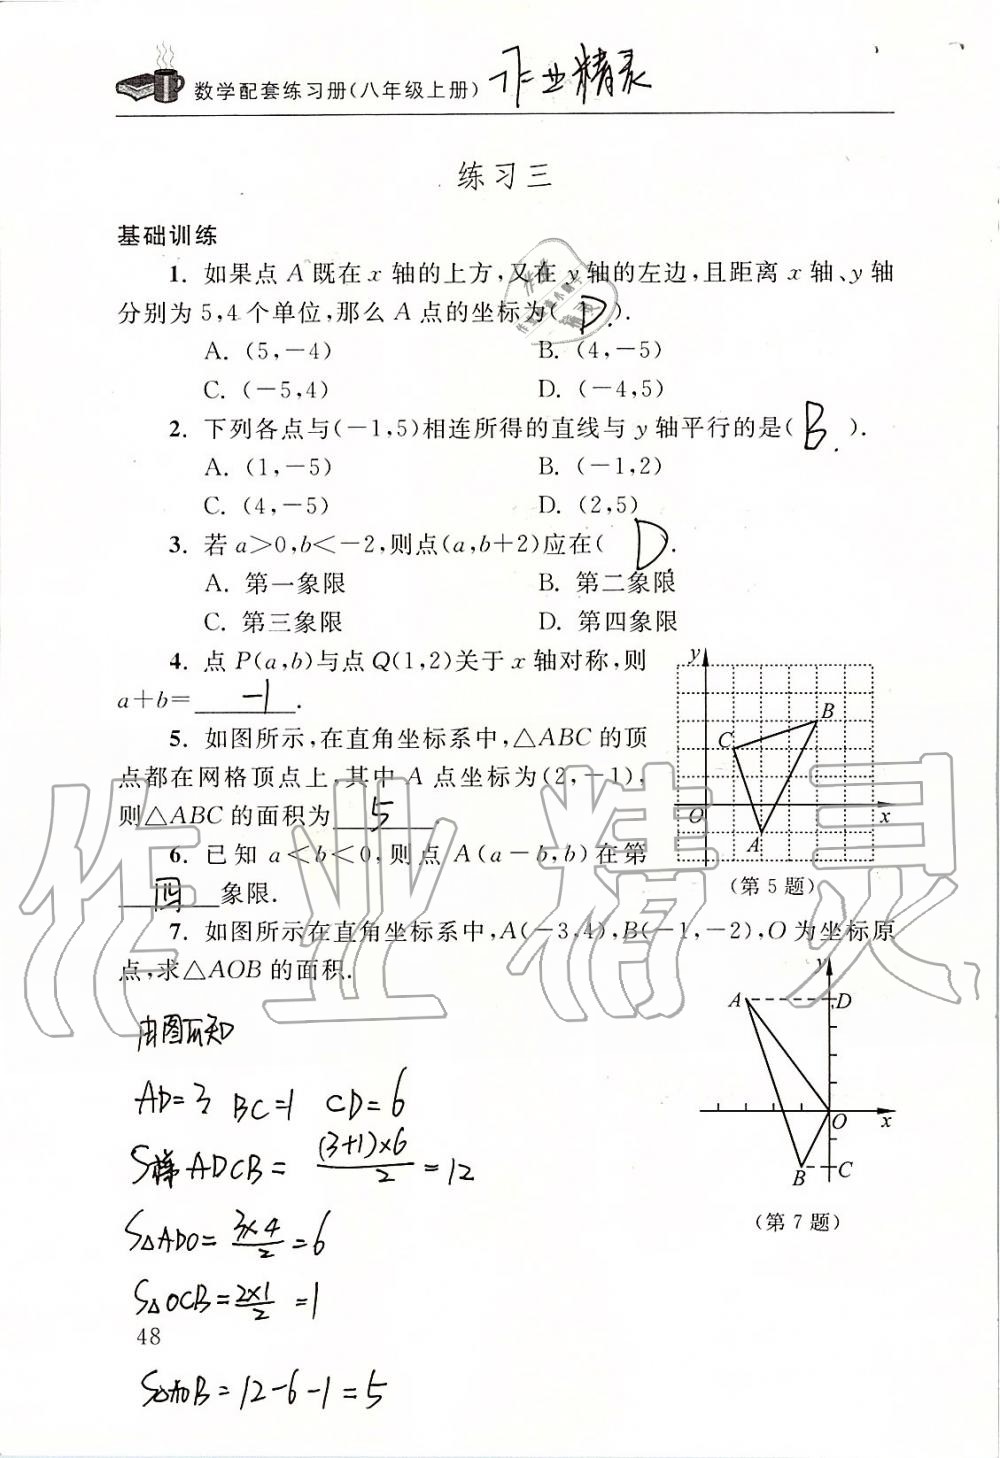 数学配套练习册(八年级上册) 作业精灵
练习三
基础训练
1. 如果点 A 既在 x 轴的上方,又在 y 轴的左边,且距离 x 轴、y 轴
分别为 5,4 个单位,那么 A 点的坐标为( D ).
A. (5,-4) B. (4,-5)
C. (-5,4) D. (-4,5)
2. 下列各点与(-1,5)相连所得的直线与 y 轴平行的是( B ).
A. (1,-5) B. (-1,2)
C. (4,-5) D. (2,5)
3. 若 a>0,b<-2,则点(a,b+2)应在( D .
A. 第一象限 B. 第二象限
C. 第三象限 D. 第四象限
4. 点 P(a,b)与点 Q(1,2)关于 x 轴对称,则
a+b= -1 .
5. 如图所示,在直角坐标系中,△ABC 的顶
点都在网格顶点上,其中 A 点坐标为(2,-1),
则△ABC 的面积为 5 .
y
B
C
O
x
A
(第 5 题)
6. 已知 a<b<0,则点 A(a-b,b)在第
四 象限.
7. 如图所示在直角坐标系中,A(-3,4),B(-1,-2),O 为坐标原
点,求△AOB 的面积.
y
A D
O
x
B C
(第 7 题)
由图可知
AD=3 BC=1 CD=6
S梯ADCB= (3+1)×6/2 =12
S△ADO= 3×4/2 =6
S△OCB= 2×1/2 =1
48
S△AOB=12-6-1=5
作业精灵